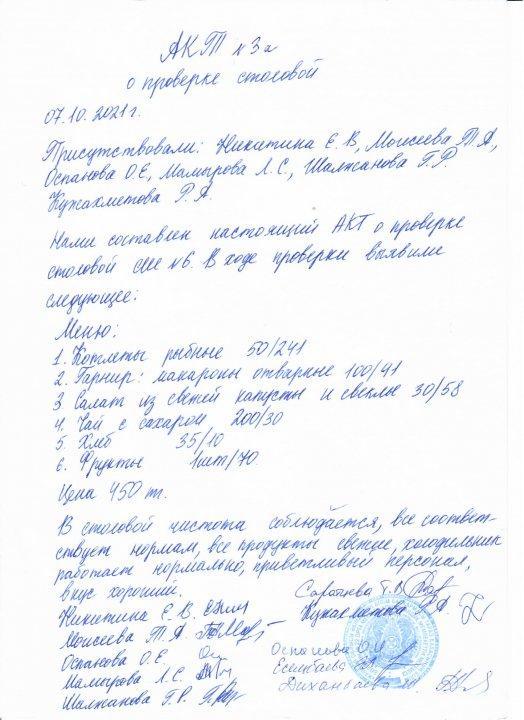 АКТ №3а
о проверке столовой
07.10.2021г.
Присутствовали: Никитина Е.В, Моисеева Т.А,
Оспанова О.Е, Мамырова Л.С., Шалжанова Г.Р.
Кужахметова Р.А.
Нами составлен настоящий АКТ о проверке
столовой СШ №6. В ходе проверки выявили
следующее:
Меню:
1. Котлеты рыбные 50/241
2. Гарнир: макароны отварные 100/91
3 Салат из свежей капусты и свеклы 30/58
4. Чай с сахаром, 200/30
5. Хлеб 35/10
6. Фрукты 1шт/70.
Цена 450 тг.
В столовой чистота соблюдается, все соответ-
ствует нормам, все продукты свежие, холодильник
работает нормально, приветливый персонал,
вкус хороший.
Никитина Е.В.
Кужахметова Р.А
Моисеева Т.А
Оспанова О.Е.
Мамырова Л.С.
Шалжанова Г.Р.